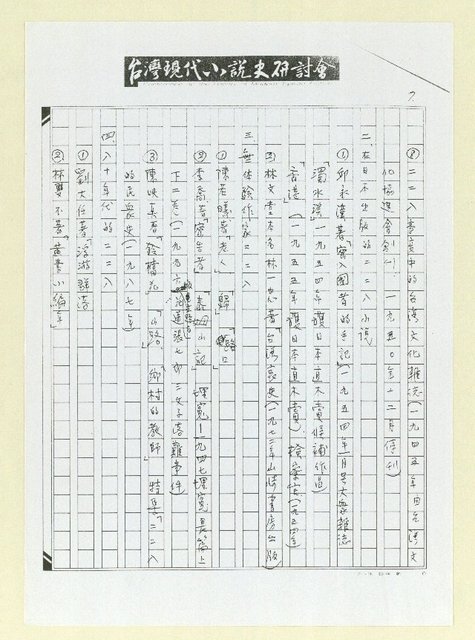 台灣現代小說史研討會
7.
⑧二二八事變中的台灣文化雜誌(一九四五年由台灣文
化協進會創刊,一九五〇年十二月停刊)
二、在日本出版的二二八小說
①邱永漢著「密入國者的手記」一九五四年一月号大眾雜誌
「濁水溪」一九五四年獲日本直木賞候補作品
「香港」(一九五五年獲日本直木賞)、檢察官(一九五四年)
②林文堂本名林一忠著「台灣哀史」(一九七二年山崎書房出版)
三、無体驗作家二二八
①陳若曦著「老人」「歸」「路口」
②李喬著「密告者」「泰姆山記」「埋冤一九四七埋冤」最為上
下二卷(一九九六
③陳映真著「鈴璫花」「山路」「鄉村的教師」特集「二二八
的民眾史」(一九八七年)
四、八十年代的二二八
①劉大任著「浮游群落」
②林雙不著「黃素小編年」